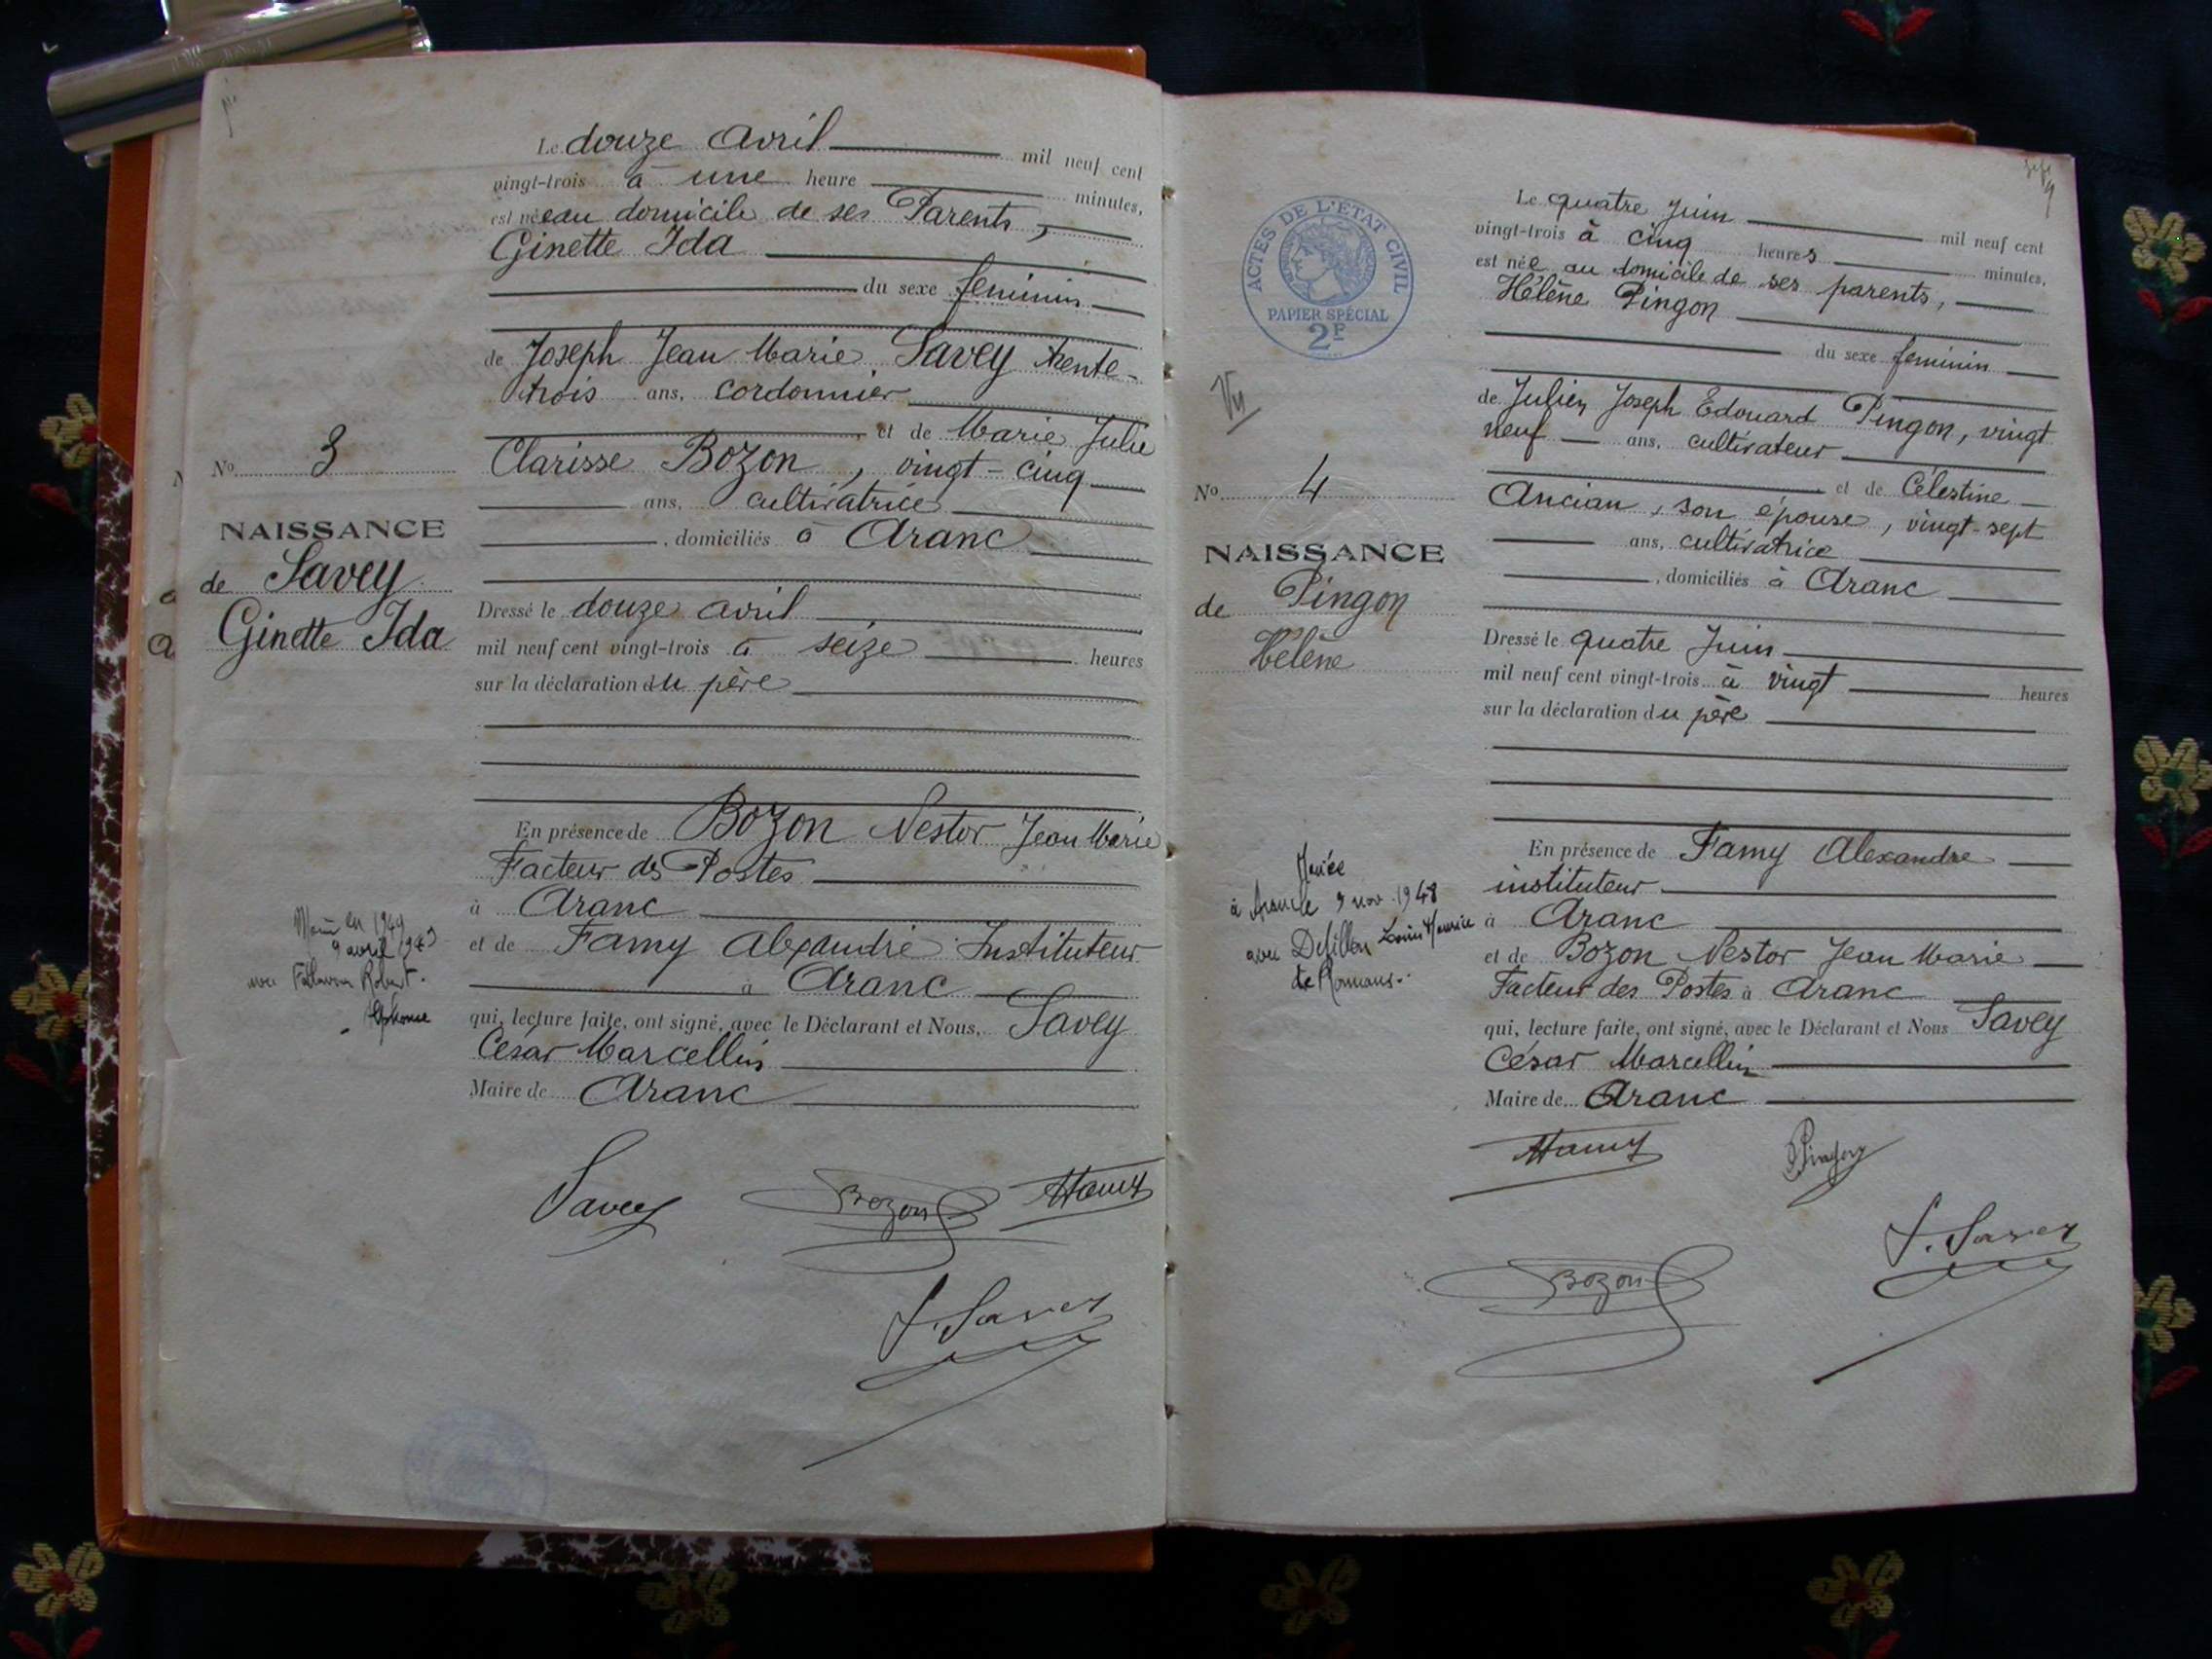 Le douze Avril mil neuf cent
vingt-trois à une heure minutes,
est née au domicile de ses Parents,
Ginette Ida
du sexe feminin
de Joseph Jean Marie Savey trente-
trois ans, cordonnier
et de Marie Julie
Clarisse Bozon, vingt-cinq
ans, cultivatrice
, domiciliés à Aranc
Dressé le douze avril
mil neuf cent vingt-trois à seize heures
sur la déclaration du père
En présence de Bozon Nestor Jean Marie
Facteur des Postes
à Aranc
et de Famy Alexandre Instituteur
à Aranc
qui, lecture faite, ont signé, avec le Déclarant et Nous, Savey
César Marcellin
Maire de Aranc
Savey Bozon Famy
Savey
No 3
NAISSANCE
de Savey
Ginette Ida
9 avril
avec Robert
Alphonse
ACTES DE L'ÉTAT CIVIL
PAPIER SPÉCIAL
2F
Vu
No 4
NAISSANCE
de Pingon
Hélène
Mariée
à Aranc le 9 nov 1948
avec Louis Maurice
de Romans
Le quatre Juin mil neuf cent
vingt-trois à cinq heures minutes,
est née au domicile de ses parents,
Hélène Pingon
du sexe feminin
de Julien Joseph Edouard Pingon, vingt
neuf ans, cultivateur
et de Célestine
Ancian, son épouse, vingt-sept
ans, cultivatrice
, domiciliés à Aranc
Dressé le quatre Juin
mil neuf cent vingt-trois à vingt heures
sur la déclaration du père
En présence de Famy Alexandre
instituteur
à Aranc
et de Bozon Nestor Jean Marie
Facteur des Postes à Aranc
qui, lecture faite, ont signé, avec le Déclarant et Nous Savey
César Marcellin
Maire de Aranc
Famy Pingon
Savey
Bozon